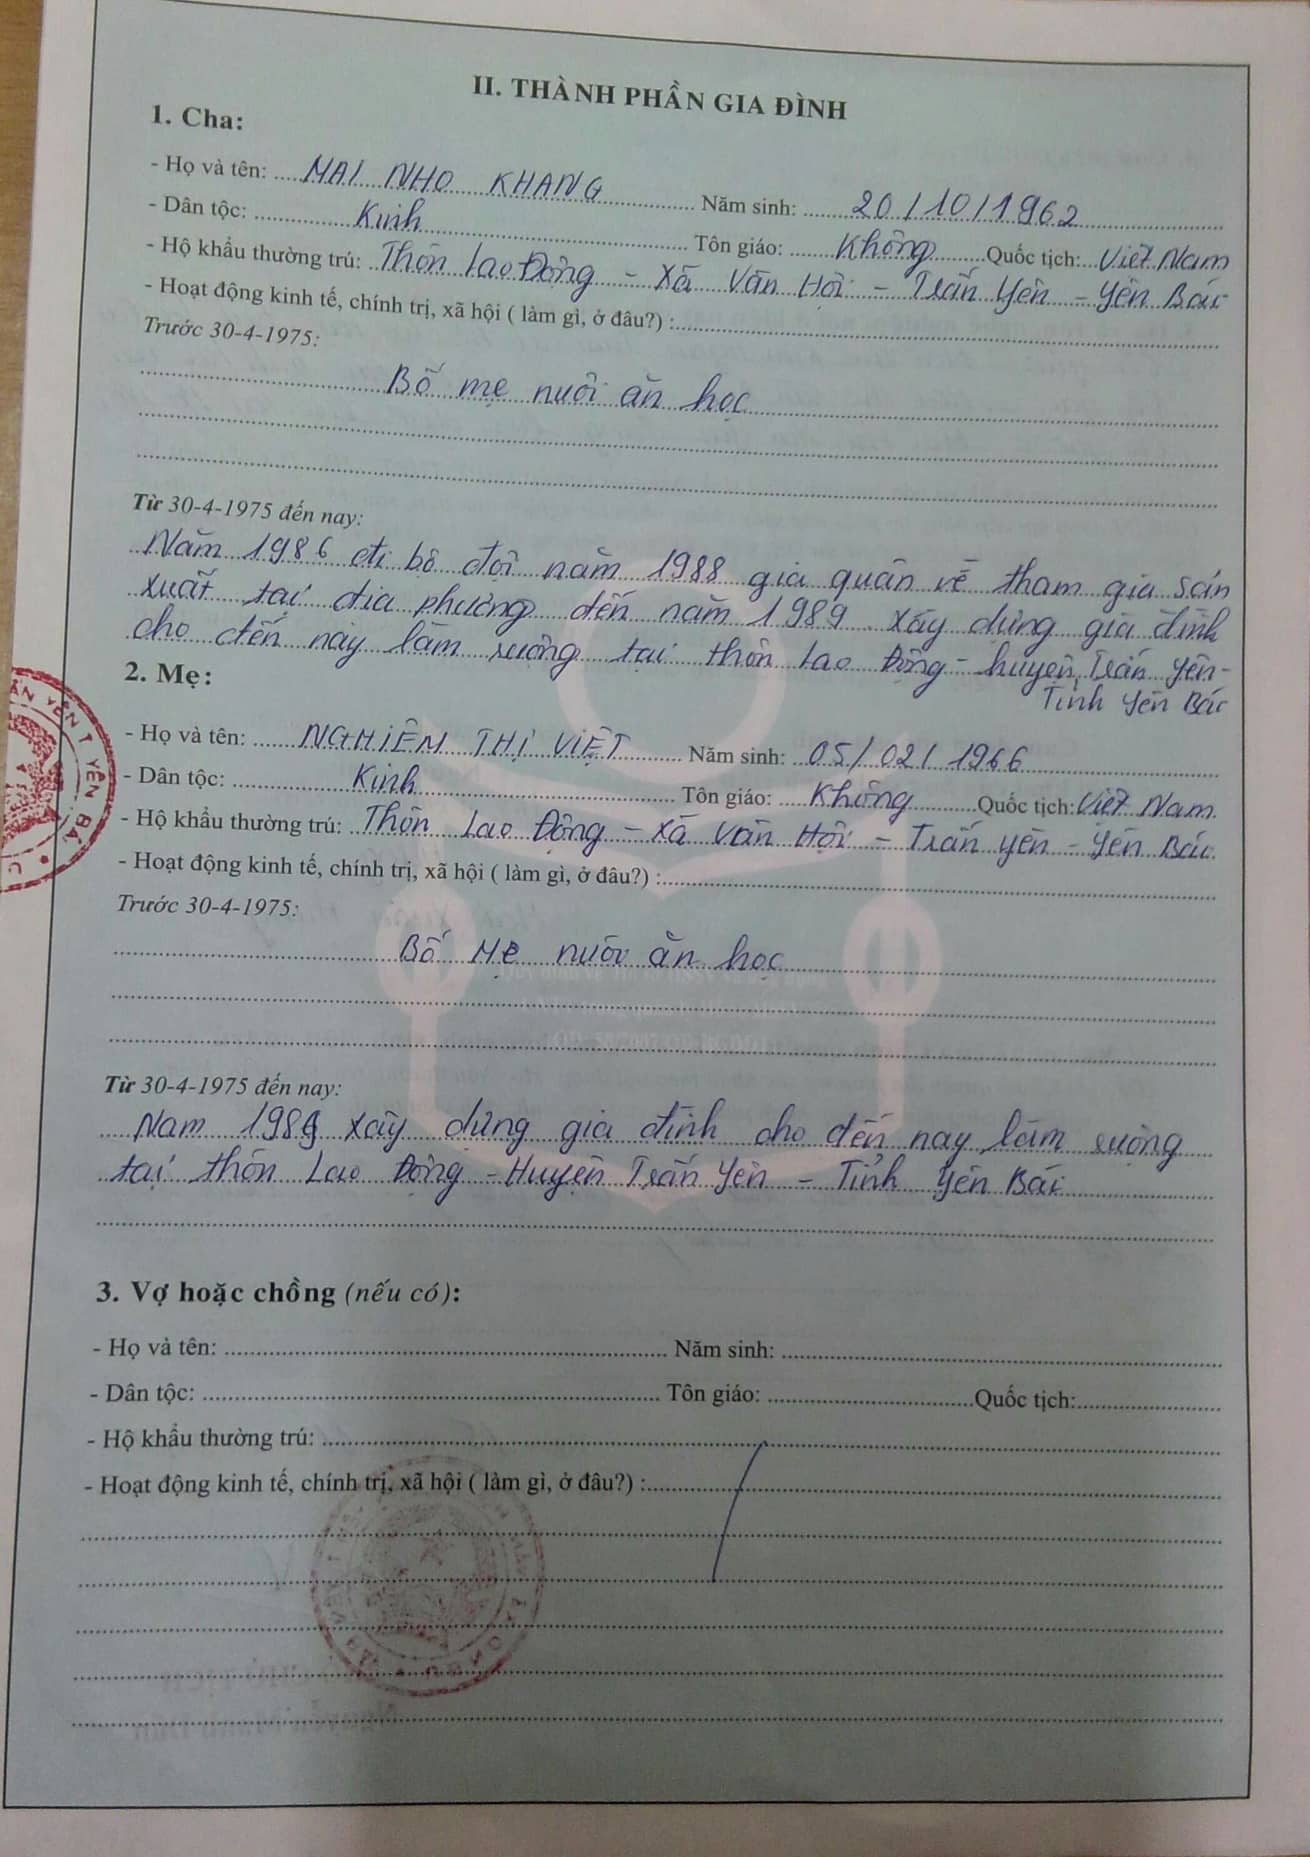 II. THÀNH PHẦN GIA ĐÌNH
1. Cha:
- Họ và tên: MAI NHO KHANG Năm sinh: 20/10/1962
- Dân tộc: Kinh Tôn giáo: Không Quốc tịch: Việt Nam
- Hộ khẩu thường trú: Thôn Lao Động - Xã Vân Hội - Trấn Yên - Yên Bái
- Hoạt động kinh tế, chính trị, xã hội ( làm gì, ở đâu?) :
Trước 30-4-1975:
Bố mẹ nuôi ăn học
Từ 30-4-1975 đến nay:
Năm 1986 đi bộ đội năm 1988 giả quân về tham gia sản
xuất tại địa phương đến năm 1989 xây dựng gia đình
cho đến nay làm ruộng tại thôn Lao Động - huyện Trấn Yên -
Tỉnh Yên Bái
2. Mẹ:
- Họ và tên: NGHIÊM THỊ VIỆT Năm sinh: 05/02/1966
- Dân tộc: Kinh Tôn giáo: Không Quốc tịch: Việt Nam
- Hộ khẩu thường trú: Thôn Lao Động - Xã Vân Hội - Trấn Yên - Yên Bái
- Hoạt động kinh tế, chính trị, xã hội ( làm gì, ở đâu?) :
Trước 30-4-1975:
Bố Mẹ nuôi ăn học
Từ 30-4-1975 đến nay:
Nam 1989 xây dựng gia đình cho đến nay làm ruộng
tại thôn Lao Động - Huyện Trấn Yên - Tỉnh Yên Bái
3. Vợ hoặc chồng (nếu có):
- Họ và tên: Năm sinh:
- Dân tộc: Tôn giáo: Quốc tịch:
- Hộ khẩu thường trú:
- Hoạt động kinh tế, chính trị, xã hội ( làm gì, ở đâu?) :